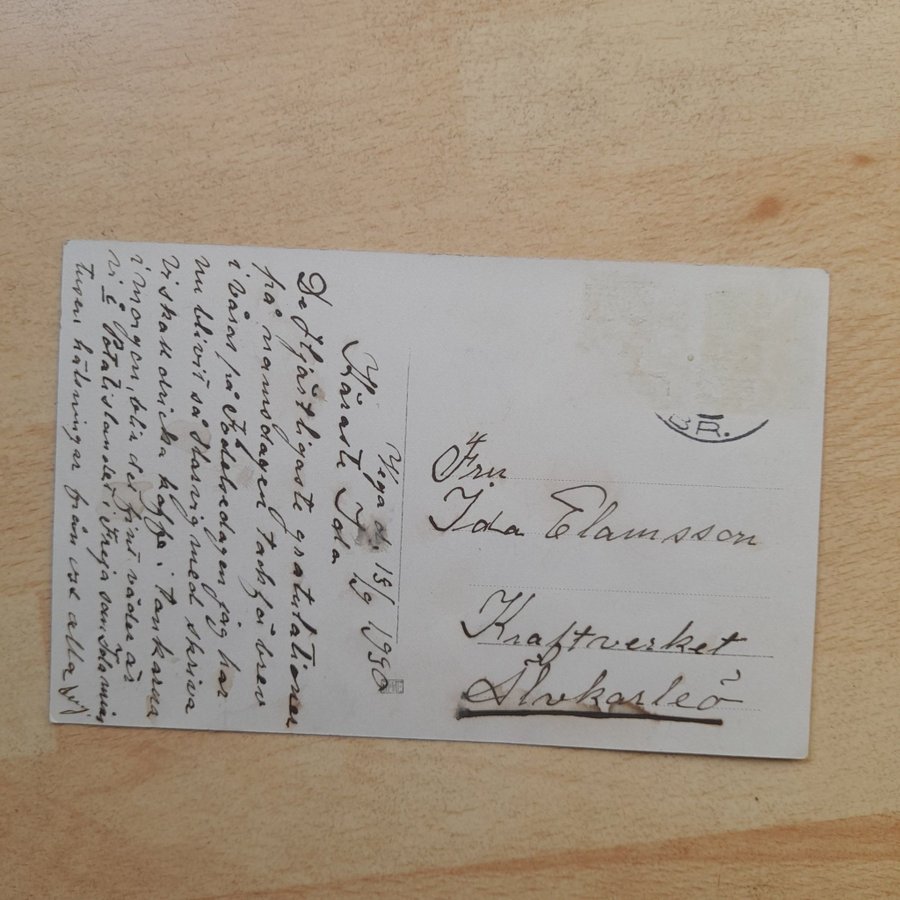 Vega d. 15/9 1930
Käraste Ida
De Hjärtligaste gratulationer
på namnsdagen tack för brev
i våras på Födelsedagen jag har
nu blivit så slarvig med skriva
vi skall dricka kaffe i tankarna
i morgon, blir det fint väder är
vi i Potatislandet,
tusen hälsningar från oss alla
BR.
Fru
Ida Elamsson
Kraftverket
Älvkarleö